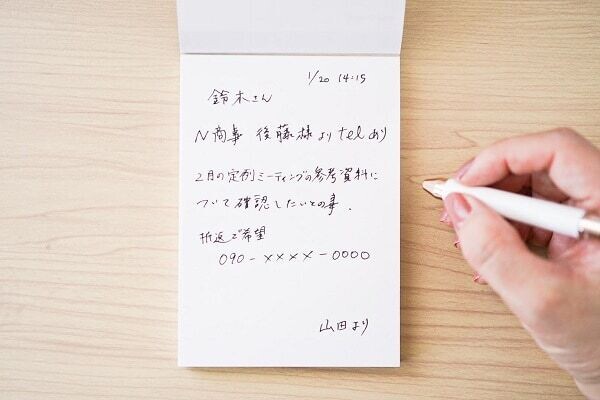 1/20 14:15
鈴木さん
N商事 後藤様より tel あり
2月の定例ミーティングの参考資料に
ついて確認したいとの事.
折返ご希望
090-××××-0000
山田より